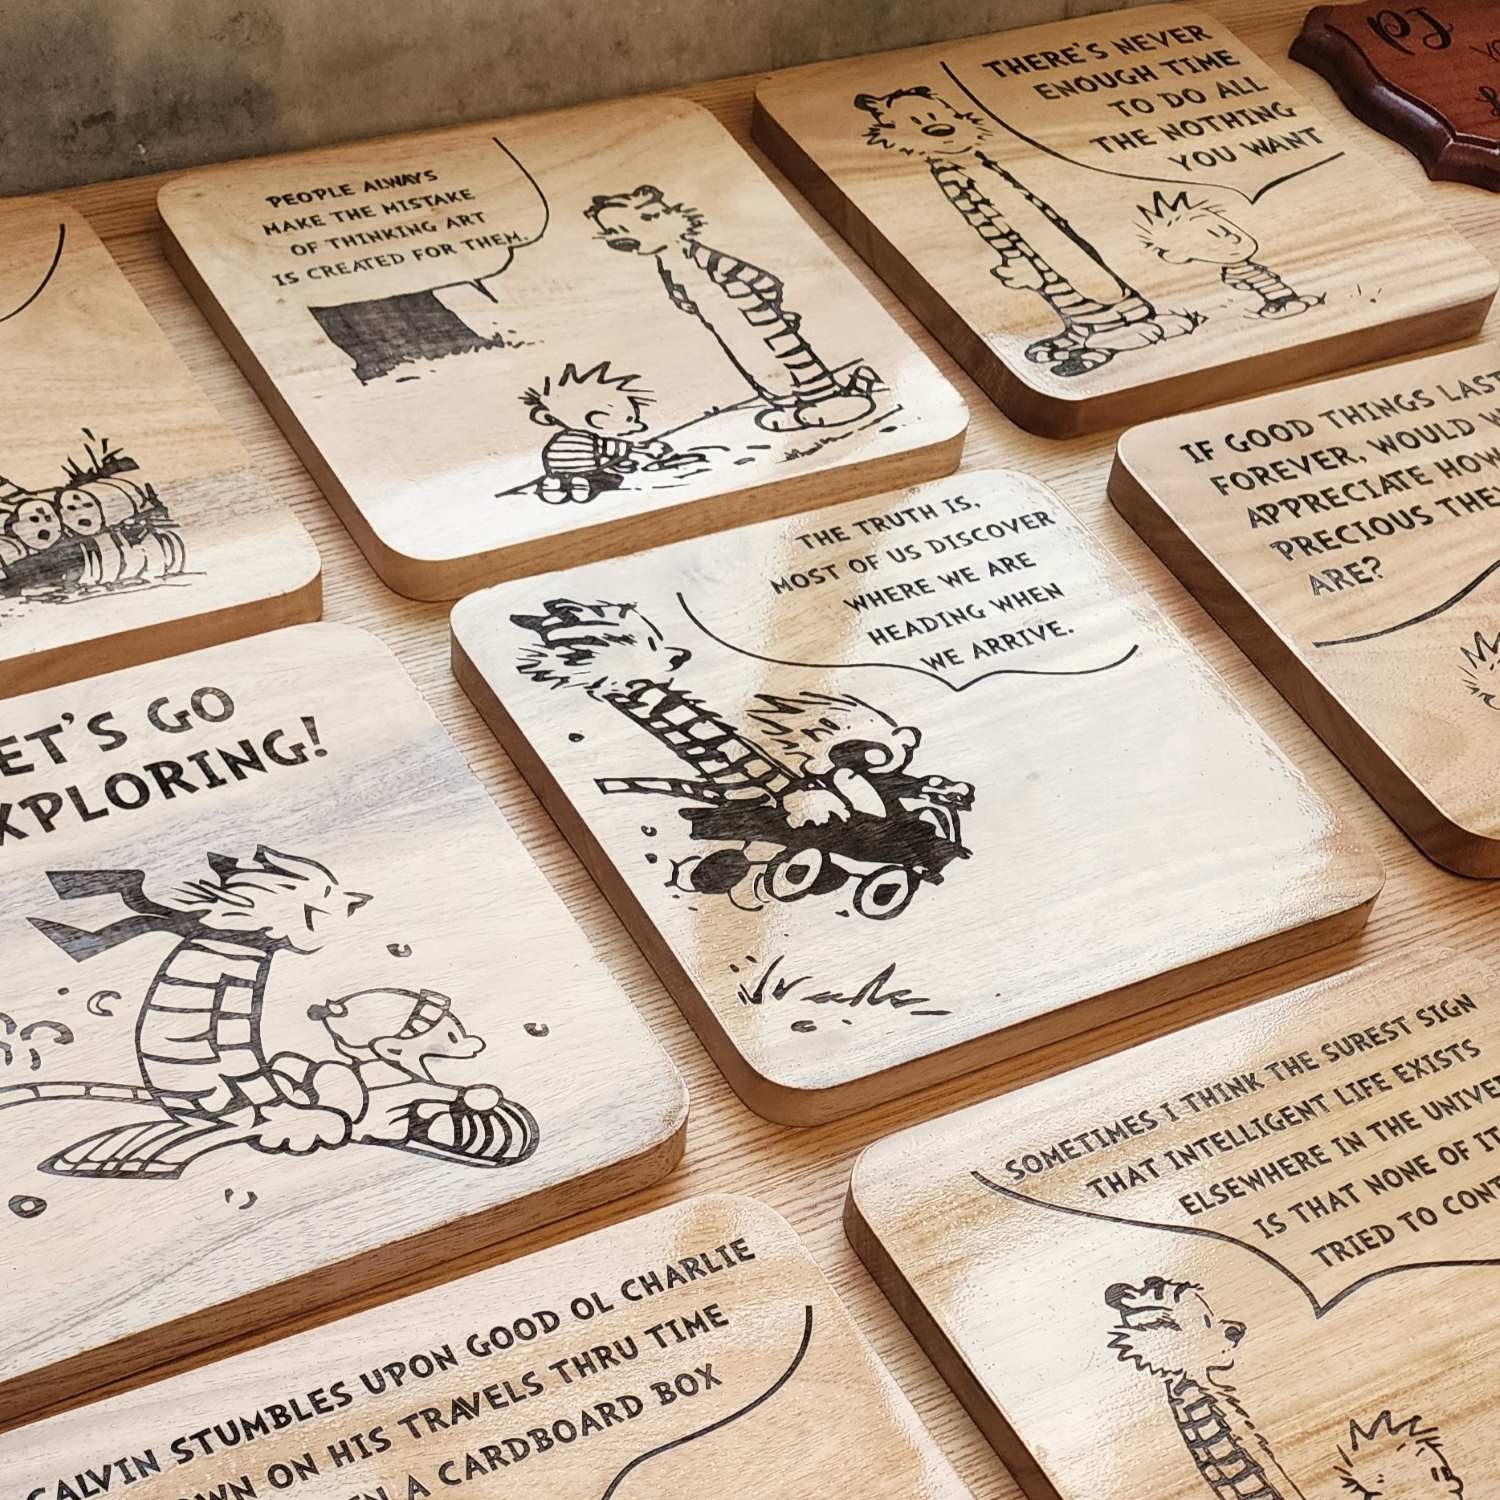 PEOPLE ALWAYS
MAKE THE MISTAKE
OF THINKING ART
IS CREATED FOR THEM.
THERE'S NEVER
ENOUGH TIME
TO DO ALL
THE NOTHING
YOU WANT
PJ
IF GOOD THINGS LAST
FOREVER, WOULD W
APPRECIATE HOW
PRECIOUS THE
ARE?
THE TRUTH IS,
MOST OF US DISCOVER
WHERE WE ARE
HEADING WHEN
WE ARRIVE.
ET'S GO
XPLORING!
SOMETIMES I THINK THE SUREST SIGN
THAT INTELLIGENT LIFE EXISTS
ELSEWHERE IN THE UNIVE
IS THAT NONE OF IT
TRIED TO CONT
CALVIN STUMBLES UPON GOOD OL CHARLIE
WN ON HIS TRAVELS THRU TIME
N A CARDBOARD BOX